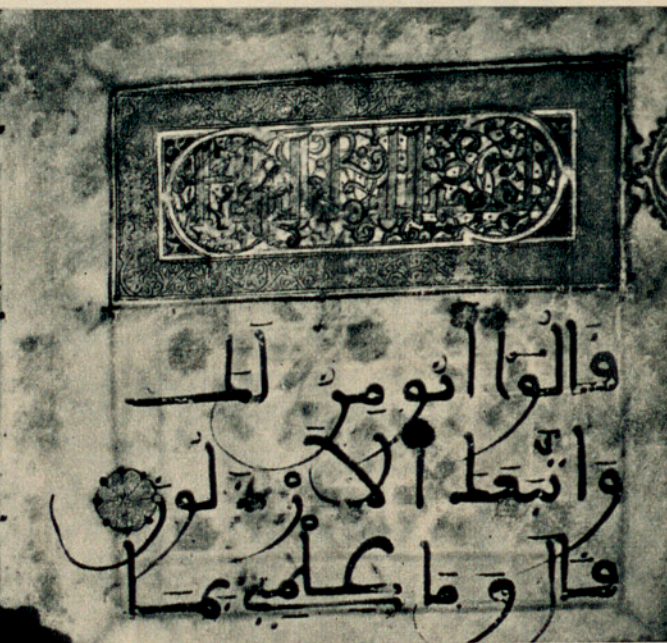 قَالُوا أَنُومِنُ لَكَ
وَاتَّبَعَكَ الْأَرْذَلُونَ
قَالَ وَمَا عِلْمِي بِمَا